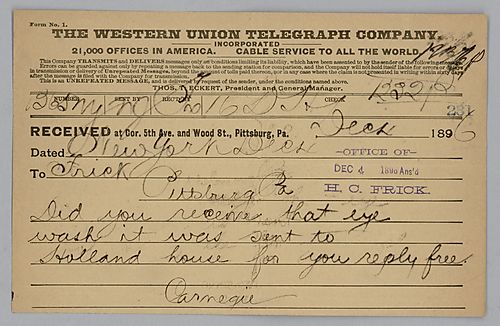 Form No. 1.
THE WESTERN UNION TELEGRAPH COMPANY.
INCORPORATED
21,000 OFFICES IN AMERICA. CABLE SERVICE TO ALL THE WORLD.
This Company TRANSMITS and DELIVERS messages only on conditions limiting its liability, which have been assented to by the sender of the following message.
Errors can be guarded against only by repeating a message back to the sending station for comparison, and the Company will not hold itself liable for errors or delays
in transmission or delivery of Unrepeated Messages, beyond the amount of tolls paid thereon, nor in any case where the claim is not presented in writing within sixty days
after the message is filed with the Company for transmission.
This is an UNREPEATED MESSAGE, and is delivered by request of the sender, under the conditions named above.
THOS. T. ECKERT, President and General Manager.
NUMBER SENT BY REC'D BY CHECK
RECEIVED at Cor. 5th Ave. and Wood St., Pittsburg, Pa. Dec 4 1896
Dated New York Dec 4
To Frick
Pittsburg Pa
-OFFICE OF-
DEC 4 1896 Ans'd
H. C. FRICK.
Did you receive that eye
wash it was sent to
Holland house for you reply free.
Carnegie